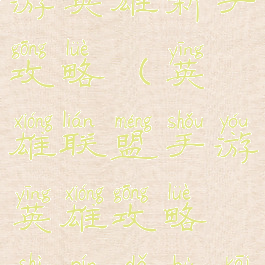 游英雄新手
gōng lüè yīng
攻略（英
xióng lián méng shǒu yóu
雄联盟手游
yīng xióng gōng lüè
英雄攻略